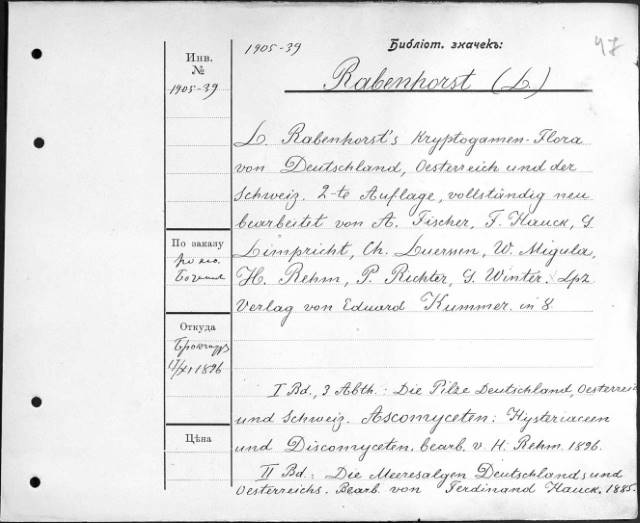 Инв.
№
1905-39
1905-39
Библіот. значекъ:
47
Rabenhorst (L.)
L. Rabenhorst's Kryptogamen-Flora
von Deutschland, Oesterreich und der
Schweiz. 2-te Auflage, vollständig neu
bearbeitet von A. Fischer, F. Hauck, G.
Limpricht, Ch. Luerssen, W. Migula,
H. Rehm, P. Richter, G. Winter. Lpz
Verlag von Eduard Kummer. in 8.
По заказу
Откуда
Брокгауз
1896
Цѣна
I Bd., 3 Abth.: Die Pilze Deutschland, Oesterreic
und Schweiz. Ascomyceten: Hysteriaceen
und Discomyceten. bearb. v. H. Rehm. 1896.
II Bd.: Die Meeresalgen Deutschlands und
Oesterreichs. Bearb. von Ferdinand Hauck. 1885.